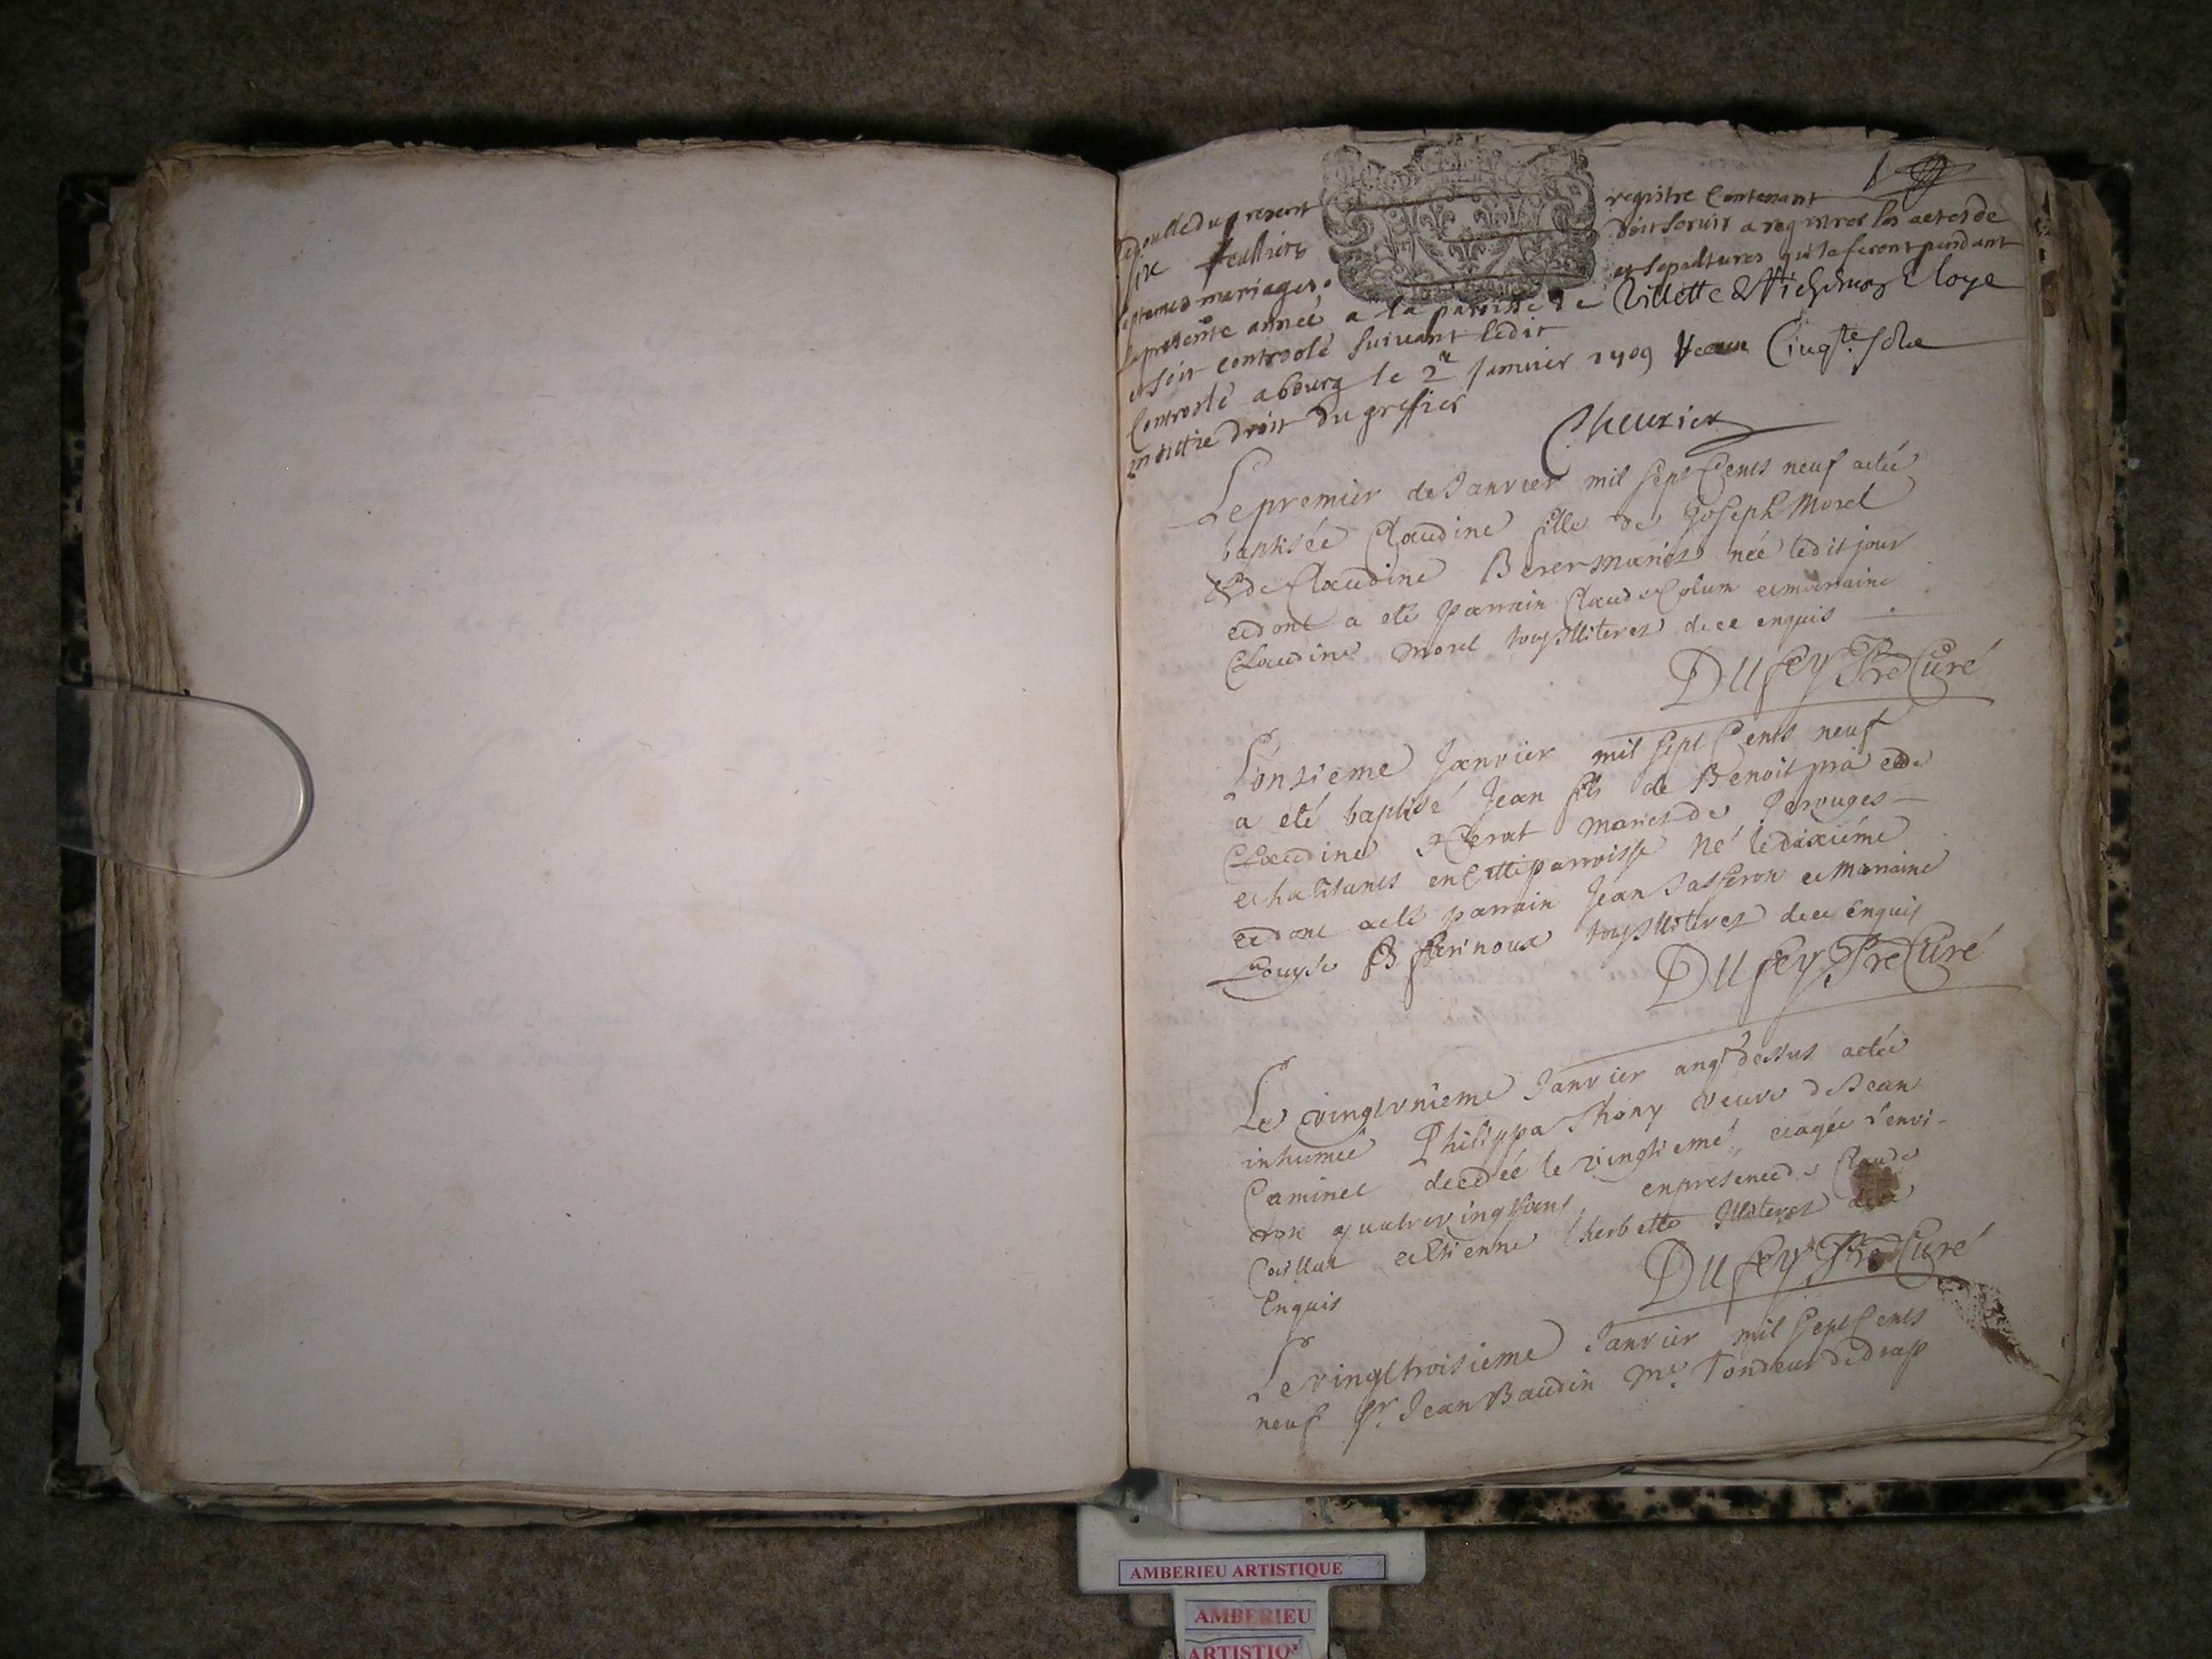 Le doublé du present registre Contenant
six feulliets doit servir a registrer les actes de
baptemes mariages et sepultures qui se feront pendant
la presente année, a la paroisse de Villette &
et soit controolé suivant ledit
Controolé a bourg le 2e Janvier 1709 Cinqte sols
droit du greffier
Chevrier
Le premier de Janvier mil sept Cents neuf aété
baptisée Claudine fille de Joseph Morel
& de Claudine mariés née ledit jour
edont a eté parrain Claude et marraine
Claudine Morel tous Illiteres de ce enquis
Dufey Pre Curé
L'onzieme Janvier mil sept Cents neuf
a eté baptisé Jean fils de Benoit pra et de
Claudine mariés de Perouges
et habitants en Cette parroisse Né le dixiéme
edont aété parrain Jean et Marraine
Louyse tous Illiteres de ce enquis
Dufey Pre Curé
Le vingtunieme Janvier an q dessus aété
inhumée Philippa Thony veuve de Jean
Caminet decedée le vingtiemé, et agée d'envi-
ron quatrevingts ans, en presence de Claude
et Etienne herbette Illiteres de ce
Enquis
Dufey Pre Curé
Le vingttroisieme Janvier mil sept Cents
neuf Sr. Jean Baudin Me. Tondeur de drap
AMBERIEU ARTISTIQUE
AMBERIEU
ARTISTIQU